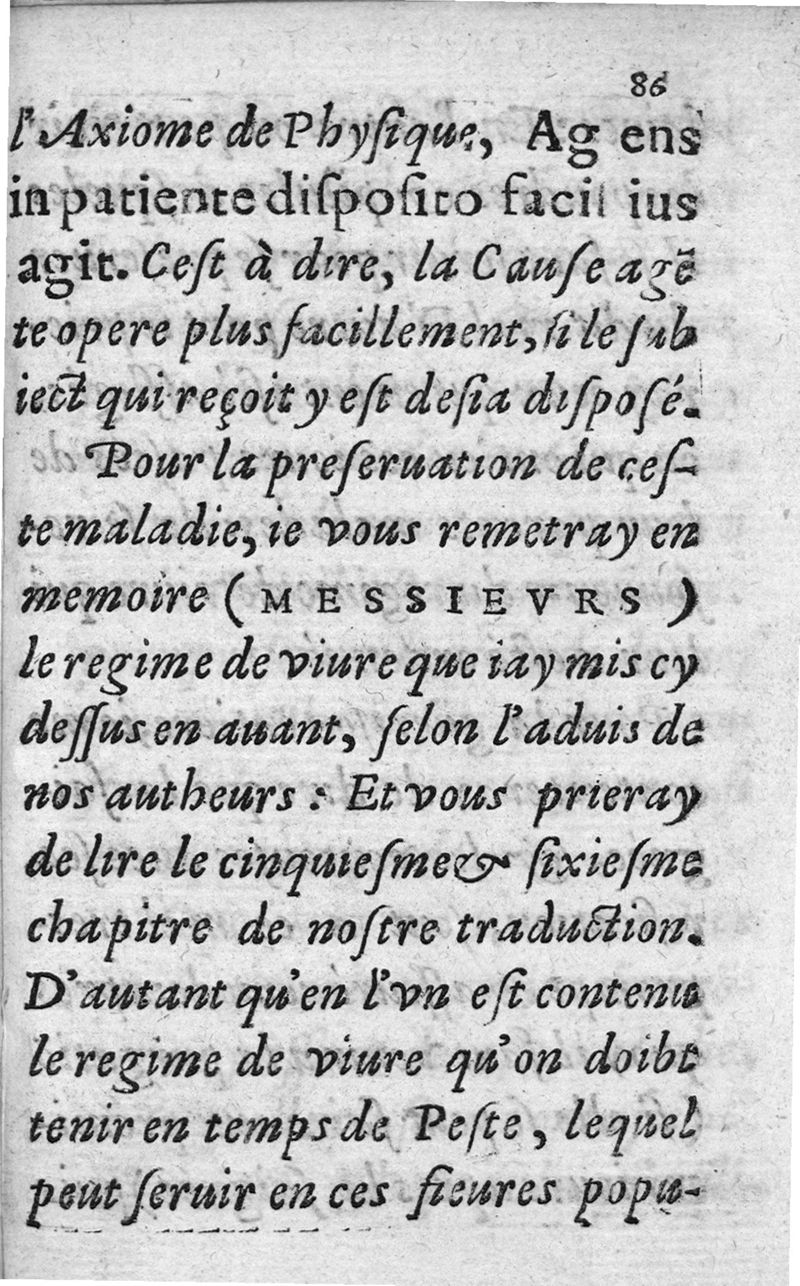 86
l'Axiome de Phyſique, Ag ens
in patiente diſpoſito facil ius
agit. Ceſt à dire, la Cauſe agẽ
te opere plus facillement, ſi le ſub
iect qui reçoit y eſt deſia diſpoſé.
Pour la preſeruation de ceſ-
te maladie, ie vous remetray en
memoire ( MESSIEVRS )
le regime de viure que iay mis cy
deſſus en auant, ſelon l'aduis de
nos autheurs : Et vous prieray
de lire le cinquieſme & ſixieſme
chapitre de noſtre traduction.
D'autant qu'en l'vn eſt contenu
le regime de viure qu'on doibt
tenir en temps de Peſte, lequel
peut ſeruir en ces fieures popu-